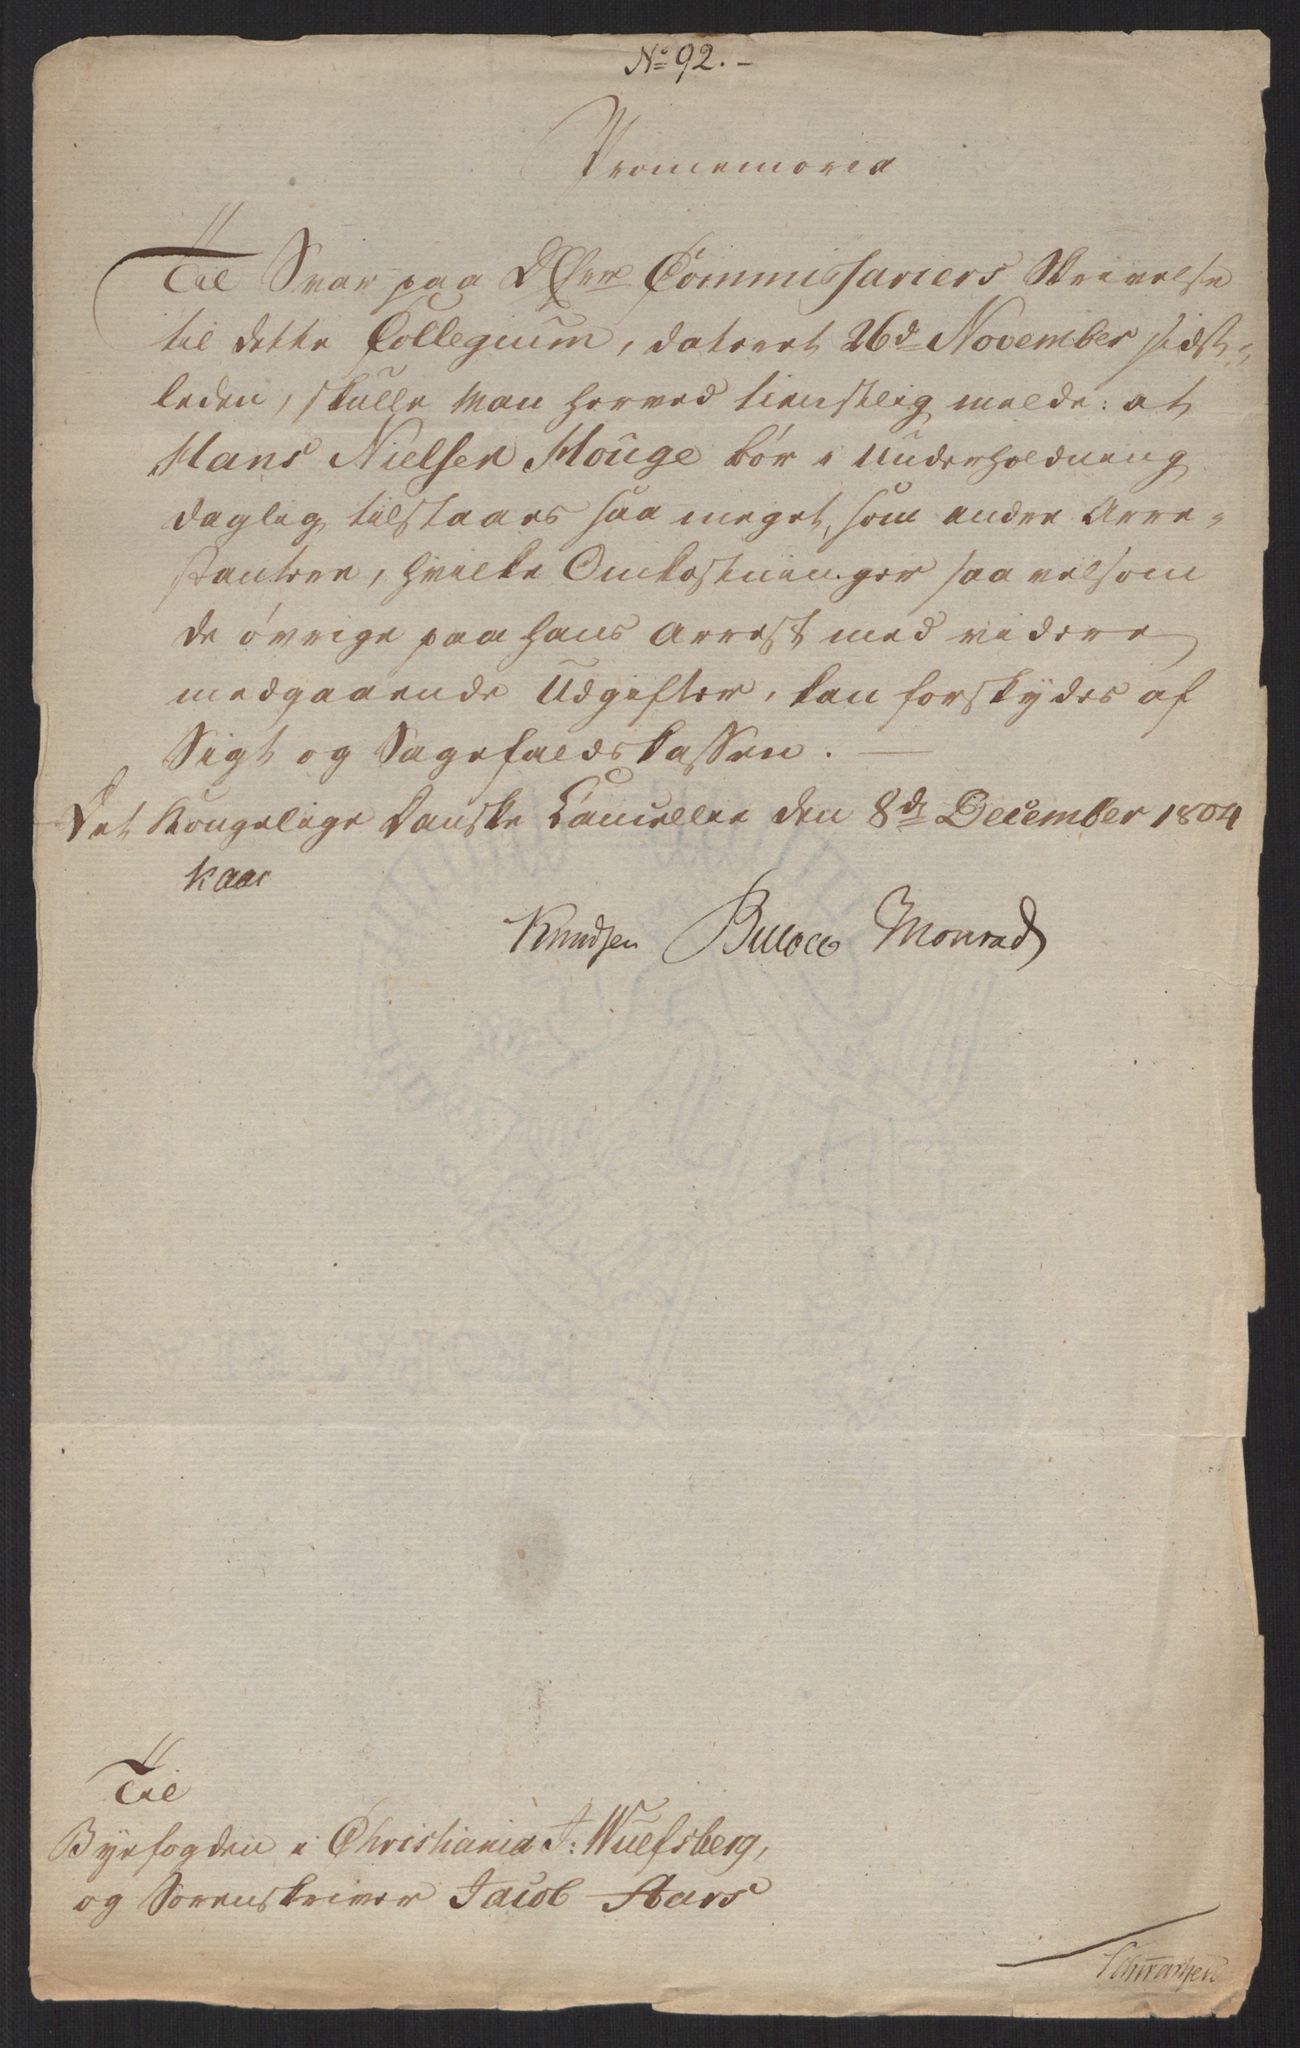 No 92. -
Promemoria
Til Svar paa D Hrr Commissariers Skrivelse
til dette Collegium, dateret 26d November sidst-
leden, skulle man herved tienstlig melde: at
Hans Nielsen Houge bør i Underholdning
daglig tilstaaes saa meget, som andre Arre-
stantere, hvilke Omkostninger saavelsom
de øvrige paa hans Arrest med videre
medgaaende Udgifter, kan forskydes af
Sigt og Sagefaldskassen.
Det Kongelige Danske Cancellie den 8de December 1804
Kaas
Knudsen Bülow Monrad
Til
Byefogden i Christiania J: Wulfsberg,
og Sorenskriver Jacob Aars